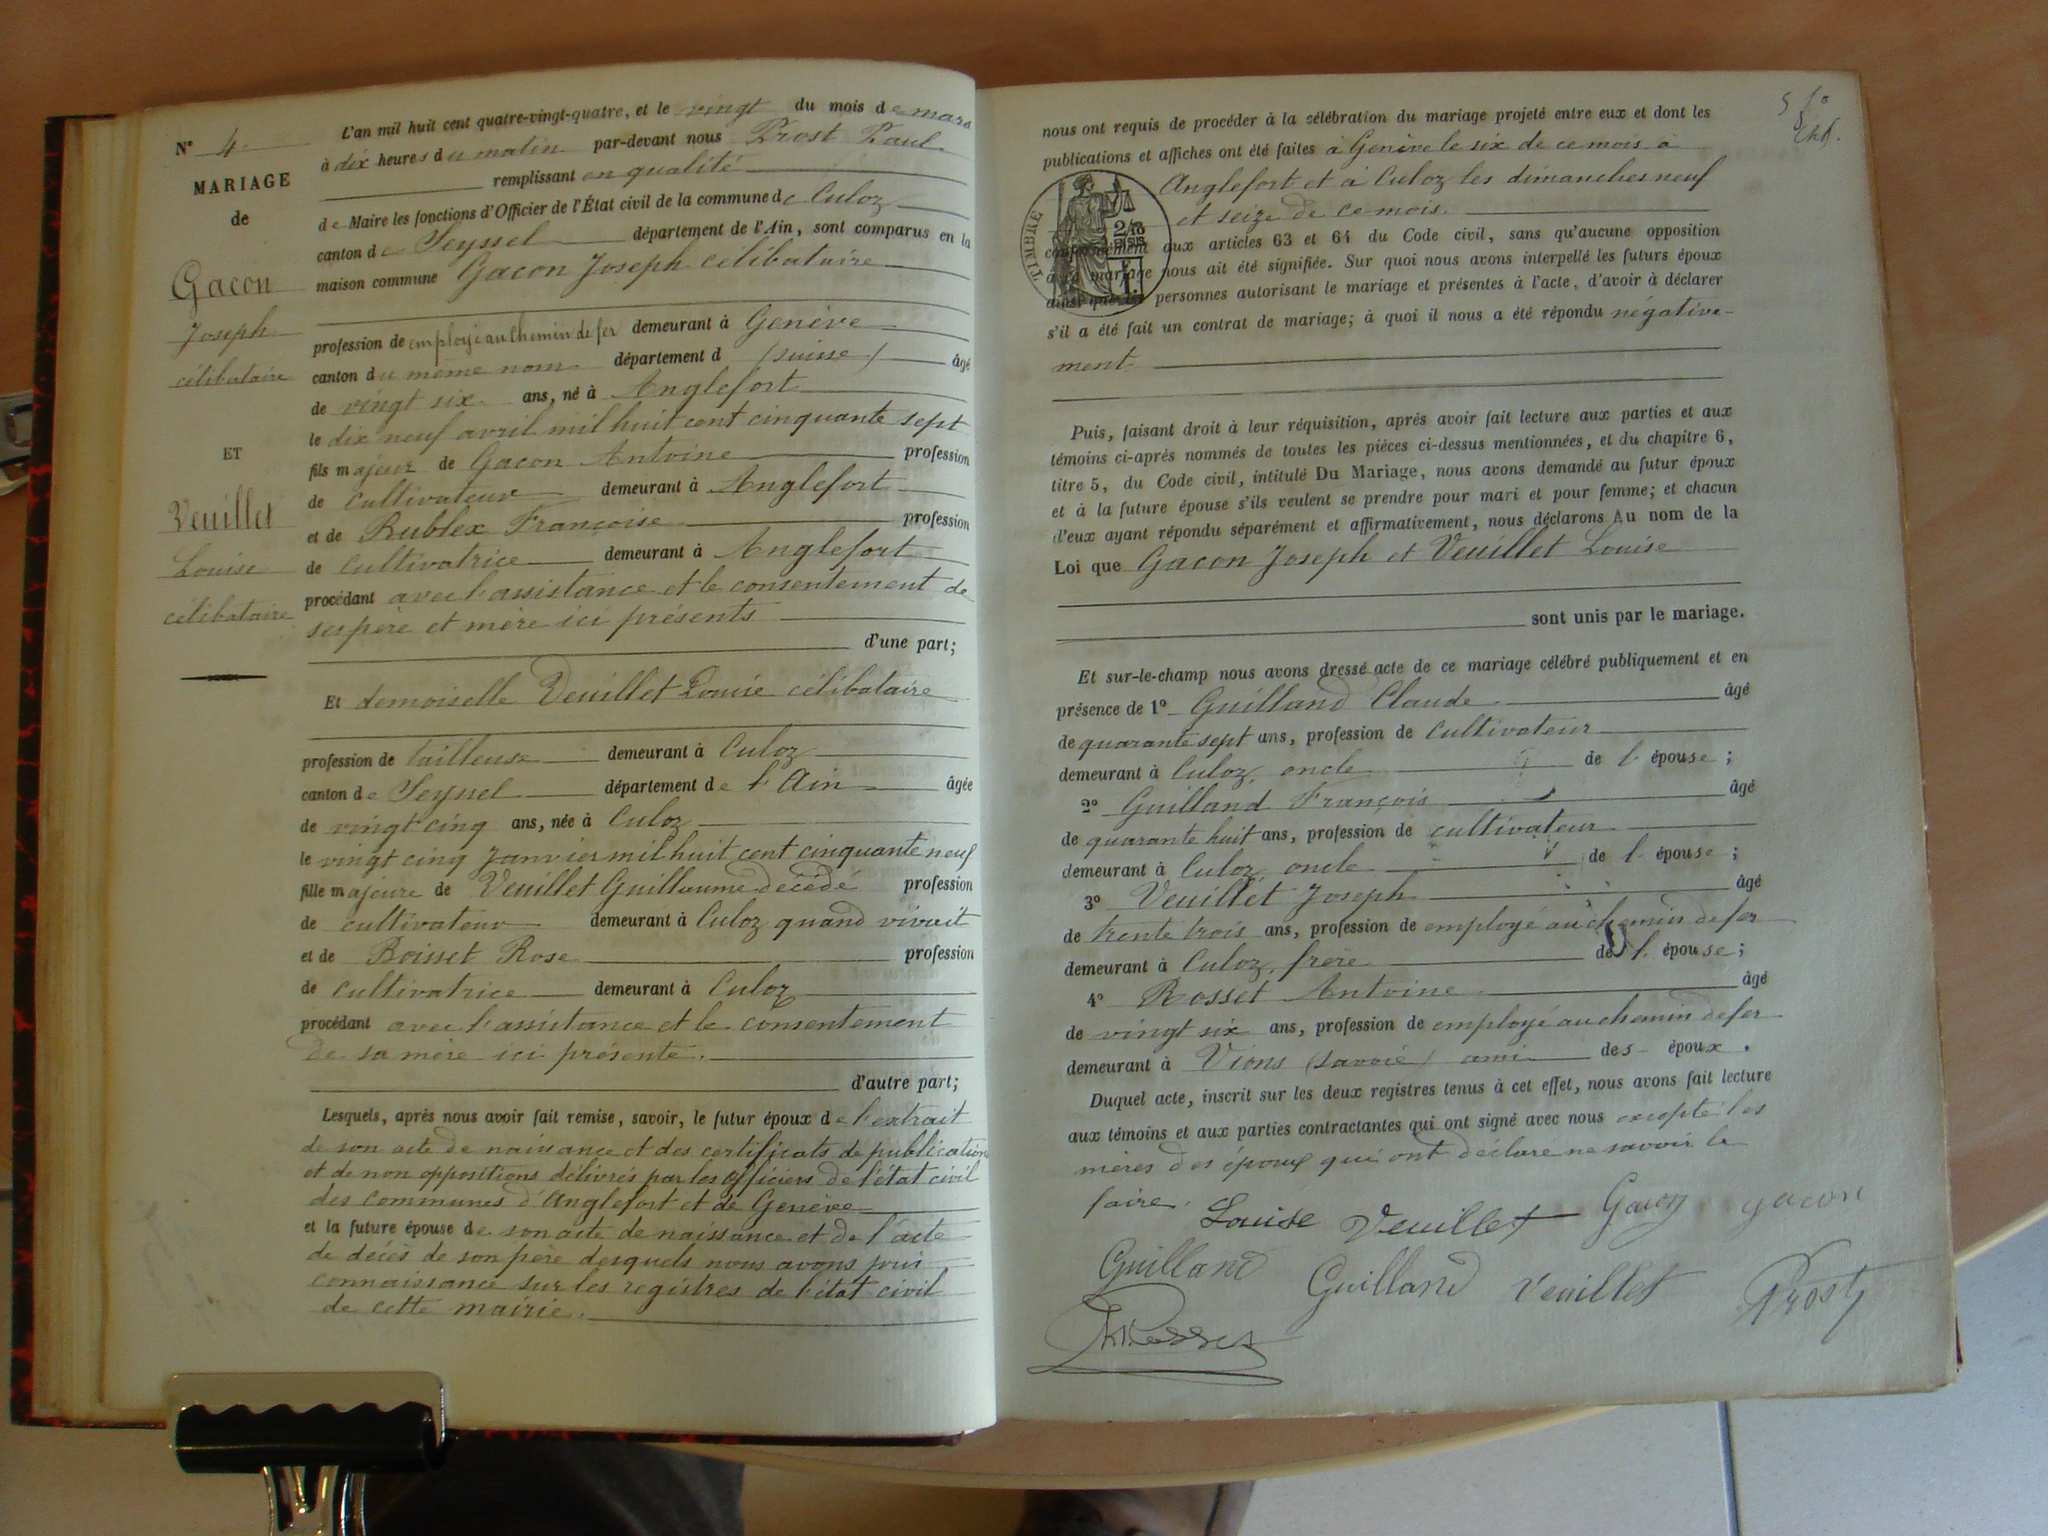 N° 4
MARIAGE
de
Gacon
Joseph
célibataire
ET
Veuillet
Louise
célibataire
L'an mil huit cent quatre-vingt-quatre, et le vingt du mois de mars
à dix heures du matin par-devant nous Prost Paul
remplissant en qualité
de Maire les fonctions d'Officier de l'État civil de la commune de Culoz
canton de Seyssel département de l'Ain, sont comparus en la
maison commune Gacon Joseph célibataire
profession de employé au chemin de fer demeurant à Genève
canton du même nom département d (suisse) âgé
de vingt six ans, né à Anglefort
le dix neuf avril mil huit cent cinquante sept
fils majeur de Gacon Antoine profession
de cultivateur demeurant à Anglefort
et de Rublex Françoise profession
de cultivatrice demeurant à Anglefort
procédant avec l'assistance et le consentement de
ses père et mère ici présents
d'une part;
Et demoiselle Veuillet Louise célibataire
profession de tailleuse demeurant à Culoz
canton de Seyssel département de l'Ain âgée
de vingt cinq ans, née à Culoz
le vingt cinq Janvier mil huit cent cinquante neuf
fille majeure de Veuillet Guillaume décédé profession
de cultivateur demeurant à Culoz quand vivait
et de Boisset Rose profession
de cultivatrice demeurant à Culoz
procédant avec l'assistance et le consentement
de sa mère ici présente.
d'autre part;
Lesquels, après nous avoir fait remise, savoir, le futur époux de l'extrait
de son acte de naissance et des certificats de publication
et de non oppositions délivrés par les officiers de l'état civil
des communes d'Anglefort et de Genève
et la future épouse de son acte de naissance et de l'acte
de décès de son père desquels nous avons pris
connaissance sur les registres de l'état civil
de cette mairie.
nous ont requis de procéder à la célébration du mariage projeté entre eux et dont les
publications et affiches ont été faites à Genève le six de ce mois à
Anglefort et à Culoz les dimanches neuf
et seize de ce mois.
TIMBRE
conformément aux articles 63 et 64 du Code civil, sans qu'aucune opposition
à ce mariage nous ait été signifiée. Sur quoi nous avons interpellé les futurs époux
ainsi que les personnes autorisant le mariage et présentes à l'acte, d'avoir à déclarer
s'il a été fait un contrat de mariage; à quoi il nous a été répondu négative-
ment
Puis, faisant droit à leur réquisition, après avoir fait lecture aux parties et aux
témoins ci-après nommés de toutes les pièces ci-dessus mentionnées, et du chapitre 6,
titre 5, du Code civil, intitulé Du Mariage, nous avons demandé au futur époux
et à la future épouse s'ils veulent se prendre pour mari et pour femme; et chacun
d'eux ayant répondu séparément et affirmativement, nous déclarons Au nom de la
Loi que Gacon Joseph et Veuillet Louise
sont unis par le mariage.
Et sur-le-champ nous avons dressé acte de ce mariage célébré publiquement et en
présence de 1° Guilland Claude âgé
de quarante sept ans, profession de cultivateur
demeurant à Culoz, oncle de l'épouse;
2° Guilland François âgé
de quarante huit ans, profession de cultivateur
demeurant à Culoz, oncle de l'épouse;
3° Veuillet Joseph âgé
de trente trois ans, profession de employé au chemin de fer
demeurant à Culoz, frère de l'épouse;
4° Rosset Antoine âgé
de vingt six ans, profession de employé au chemin de fer
demeurant à Vions (savoie) ami des époux.
Duquel acte, inscrit sur les deux registres tenus à cet effet, nous avons fait lecture
aux témoins et aux parties contractantes qui ont signé avec nous excepté les
mères des époux qui ont déclaré ne savoir le
faire.
Louise Veuillet Gacon gacon
Guilland Guilland Veuillet Prost
Rosset